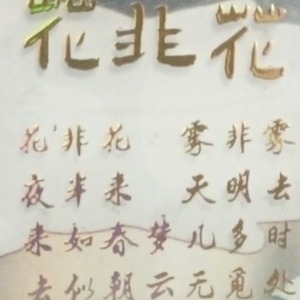 花非花
花非花 雾非雾
夜半来 天明去
来如春梦几多时
去似朝云无觅处